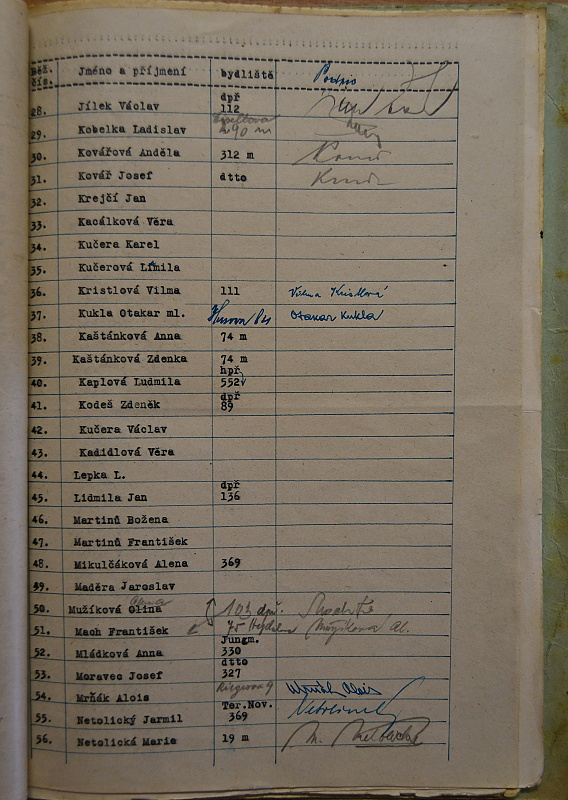 Běž. čís. Jméno a příjmení bydliště Podpis
28. Jílek Václav dpř 112
29. Kobelka Ladislav 90 m
30. Kovářová Anděla 312 m
31. Kovář Josef dtto
32. Krejčí Jan
33. Kacálková Věra
34. Kučera Karel
35. Kučerová Limila
36. Kristlová Vilma 111 Vilma Kristlová
37. Kukla Otakar ml. Otakar Kukla
38. Kaštánková Anna 74 m
39. Kaštánková Zdenka 74 m
40. Kaplová Ludmila hpř 552
41. Kodeš Zdeněk dpř 89
42. Kučera Václav
43. Kadidlová Věra
44. Lepka L.
45. Lidmila Jan dpř 136
46. Martinů Božena
47. Martinů František
48. Mikulčáková Alena 369
49. Maděra Jaroslav
50. Mužíková Olina
51. Mach František 75
52. Mládková Anna Jungm. 330
53. Moravec Josef dtto 327
54. Mrňák Alois Riegrova 9 Mrňák Alois
55. Netolický Jarmil Ter.Nov. 369
56. Netolická Marie 19 m